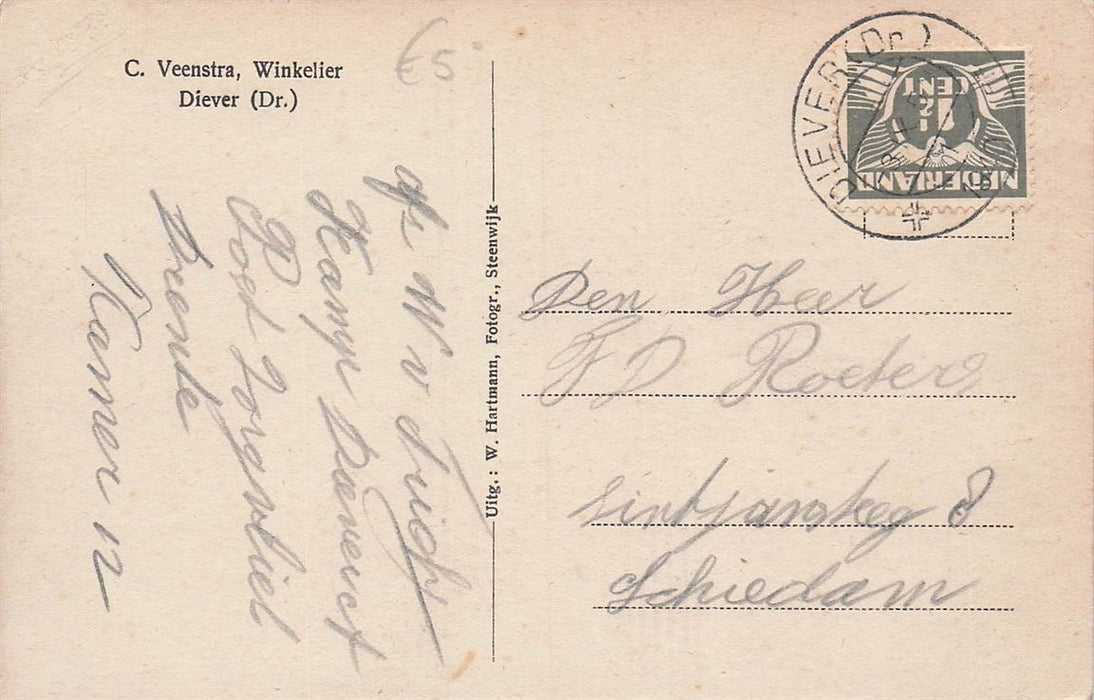 C. Veenstra, Winkelier
Diever (Dr.)
€5
DIEVER (Dr.)
NEDERLAND
1½
CENT
Uitg.: W. Hartmann, Fotogr., Steenwijk
Den Heer
F D Roeters
Sintjansteeg 8
Schiedam
W v
Kamp
P
Drente
Kamer 12